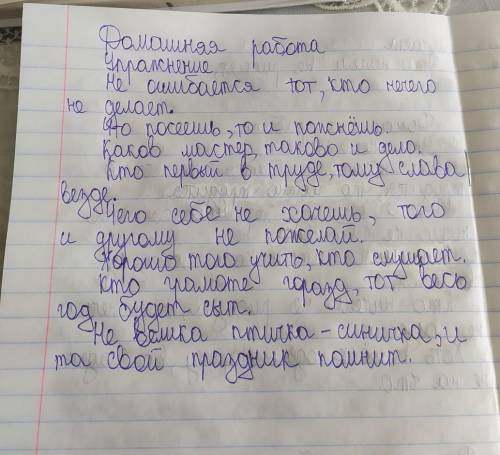 Домашняя работа
Упражнение
Не ошибается тот, кто нечего
не делает.
Что посеешь, то и пожнёшь.
Каков мастер, таково и дело.
Кто первый в труде, тому слава
везде.
Чего себе не хочешь, того
и другому не пожелай.
Хорошо того учить, кто слушает.
Кто грамоте горазд, тот весь
год будет сыт.
Не велика птичка-синичка, и
та свой праздник помнит.